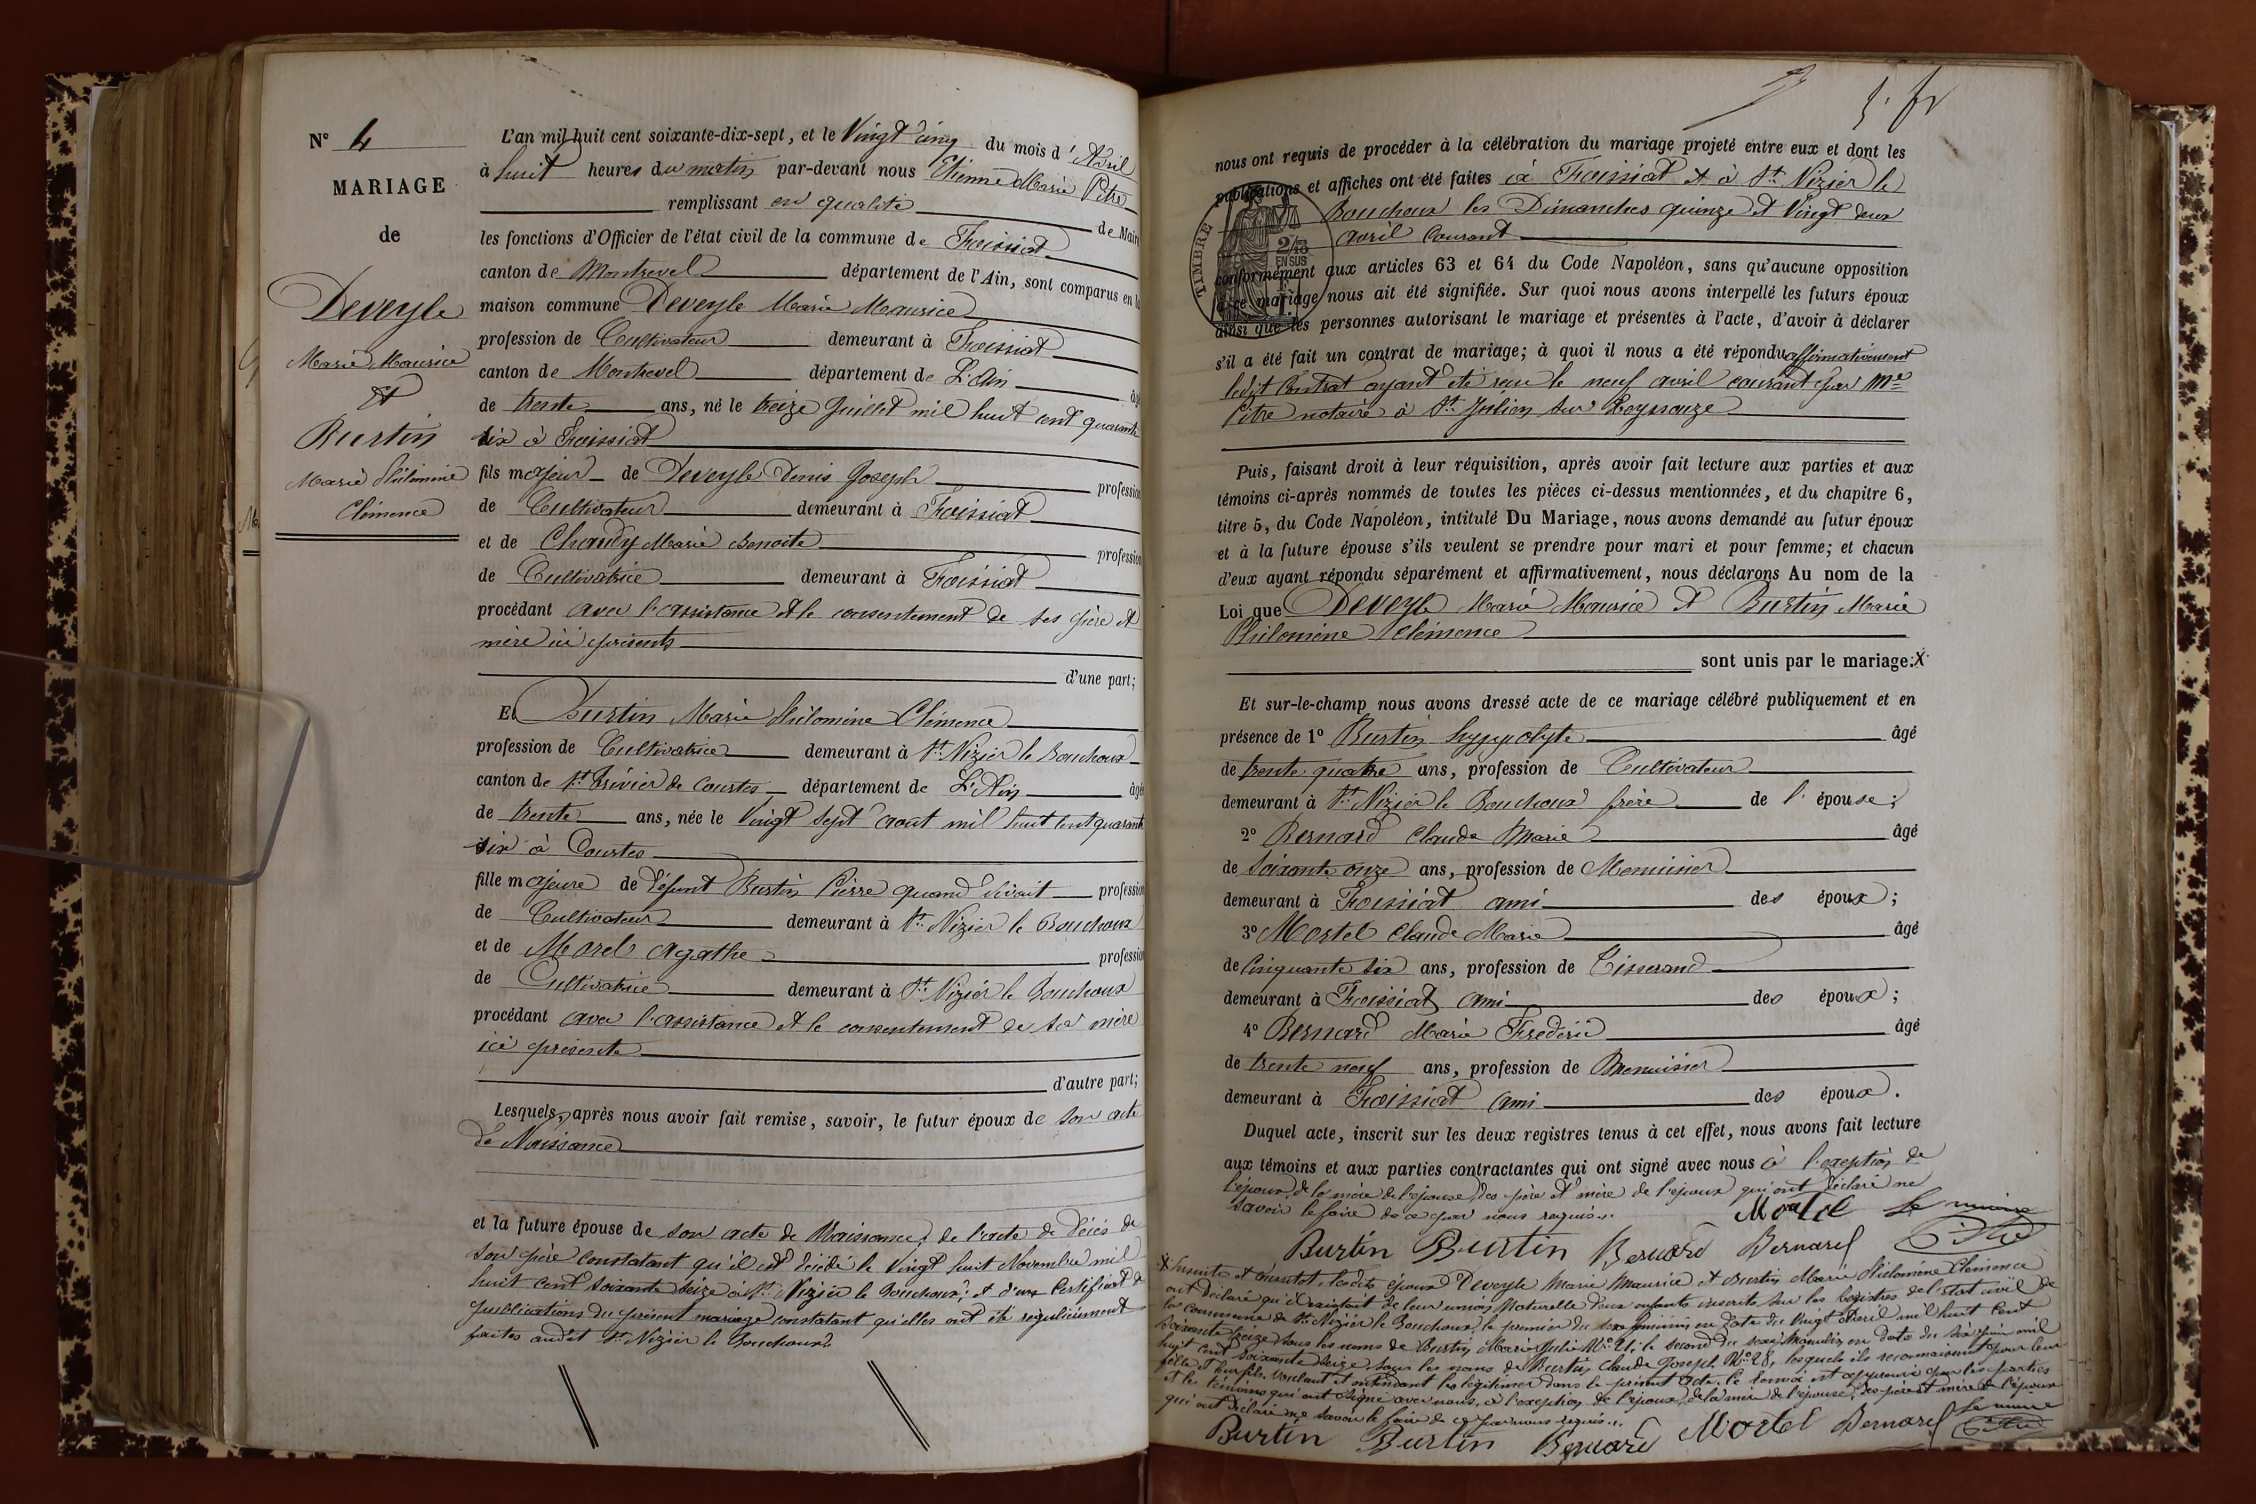 N° 4
MARIAGE
de
Deveyle
Marie Maurice
et
Burtin
Marie Philomène
Clémence
L'an mil huit cent soixante-dix-sept, et le Vingt cinq du mois d'Avril
à huit heures du matin par-devant nous Etienne Marie Pitre
remplissant en qualité de Maire
les fonctions d'Officier de l'état civil de la commune de Foissiat
canton de Montrevel département de l'Ain, sont comparus en la
maison commune Deveyle Marie Maurice
profession de Cultivateur demeurant à Foissiat
canton de Montrevel département de L'Ain âgé
de trente ans, né le treize Juillet mil huit cent quarante
six à Foissiat
fils majeur de Deveyle Denis Joseph profession
de Cultivateur demeurant à Foissiat
et de Chandy Marie Benoite profession
de Cultivatrice demeurant à Foissiat
procédant avec l'assistance et le consentement de ses père et
mère ici présents
d'une part;
Et Burtin Marie Philomène Clémence
profession de Cultivatrice demeurant à St Nizier le Bouchoux
canton de St Trivier de Courtes département de L'Ain âgée
de trente ans, née le Vingt sept aout mil huit cent quarante
six à Courtes
fille majeure de défunt Burtin Pierre quand vivait profession
de Cultivateur demeurant à St Nizier le Bouchoux
et de Morel Agathe profession
de Cultivatrice demeurant à St Nizier le Bouchoux
procédant avec l'assistance et le consentement de sa mère
ici présente
d'autre part;
Lesquels, après nous avoir fait remise, savoir, le futur époux de son acte
de Naissance
et la future épouse de son acte de Naissance, de l'acte de décès de
son père constatant qu'il est décédé le Vingt huit Novembre mil
huit cent soixante seize à St Nizier le Bouchoux, et d'un Certificat de
publications du présent mariage constatant qu'elles ont été régulièrement
faites audit St Nizier le Bouchoux
5. fr
nous ont requis de procéder à la célébration du mariage projeté entre eux et dont les
publications et affiches ont été faites à Foissiat et à St Nizier le
Bouchoux les Dimanches quinze et Vingt deux
avril Courant
TIMBRE
2/10
EN SUS
conformément aux articles 63 et 64 du Code Napoléon, sans qu'aucune opposition
à ce mariage nous ait été signifiée. Sur quoi nous avons interpellé les futurs époux
ainsi que les personnes autorisant le mariage et présentes à l'acte, d'avoir à déclarer
s'il a été fait un contrat de mariage; à quoi il nous a été répondu affirmativement
ledit Contrat ayant été reçu le neuf avril courant par Me
Pitre notaire à St Julien sur Reyssouze
Puis, faisant droit à leur réquisition, après avoir fait lecture aux parties et aux
témoins ci-après nommés de toutes les pièces ci-dessus mentionnées, et du chapitre 6,
titre 5, du Code Napoléon, intitulé Du Mariage, nous avons demandé au futur époux
et à la future épouse s'ils veulent se prendre pour mari et pour femme; et chacun
d'eux ayant répondu séparément et affirmativement, nous déclarons Au nom de la
Loi que Deveyle Marie Maurice et Burtin Marie
Philomène Clémence
sont unis par le mariage: X
Et sur-le-champ nous avons dressé acte de ce mariage célébré publiquement et en
présence de 1° Burtin hyppolyte âgé
de trente quatre ans, profession de Cultivateur
demeurant à St Nizier le Bouchoux frère de l'épouse;
2° Bernard Claude Marie âgé
de soixante onze ans, profession de Menuisier
demeurant à Foissiat ami des époux;
3° Mortel Claude Marie âgé
de Cinquante six ans, profession de Tisserand
demeurant à Foissiat ami des époux;
4° Bernard Marie Frédéric âgé
de trente neuf ans, profession de Menuisier
demeurant à Foissiat ami des époux.
Duquel acte, inscrit sur les deux registres tenus à cet effet, nous avons fait lecture
aux témoins et aux parties contractantes qui ont signé avec nous à l'exception de
l'époux, de la mère de l'épouse, des père et mère de l'époux qui ont déclaré ne
savoir le faire de ce par nous requis.
Mortel Le maire
Burtin Burtin Bernard Bernard Pitre
X Ensuite et lesdits époux Deveyle Marie Maurice et Burtin Marie Philomène Clémence
ont déclaré qu'il existait de leur union Naturelle deux enfants inscrits sur les Registres de l'état civil de
la commune de St Nizier le Bouchoux, le premier du sexe féminin en date du Vingt Avril mil huit Cent
soixante treize sous les noms de Burtin Marie Julie No 21, le second du sexe Masculin en date du Six Juin mil
huit cent soixante seize sous les noms de Burtin Claude Joseph No 28, lesquels ils reconnaissent pour leur
fille et leur fils, voulant et entendant les légitimer dans le présent acte. Le renvoi est approuvé par les parties
et les témoins qui ont signé avec nous, à l'exception de l'époux, de la mère de l'épouse, des père et mère de l'époux
qui ont déclaré ne savoir le faire de ce par nous requis.
Le maire
Burtin Burtin Bernard Mortel Bernard Pitre